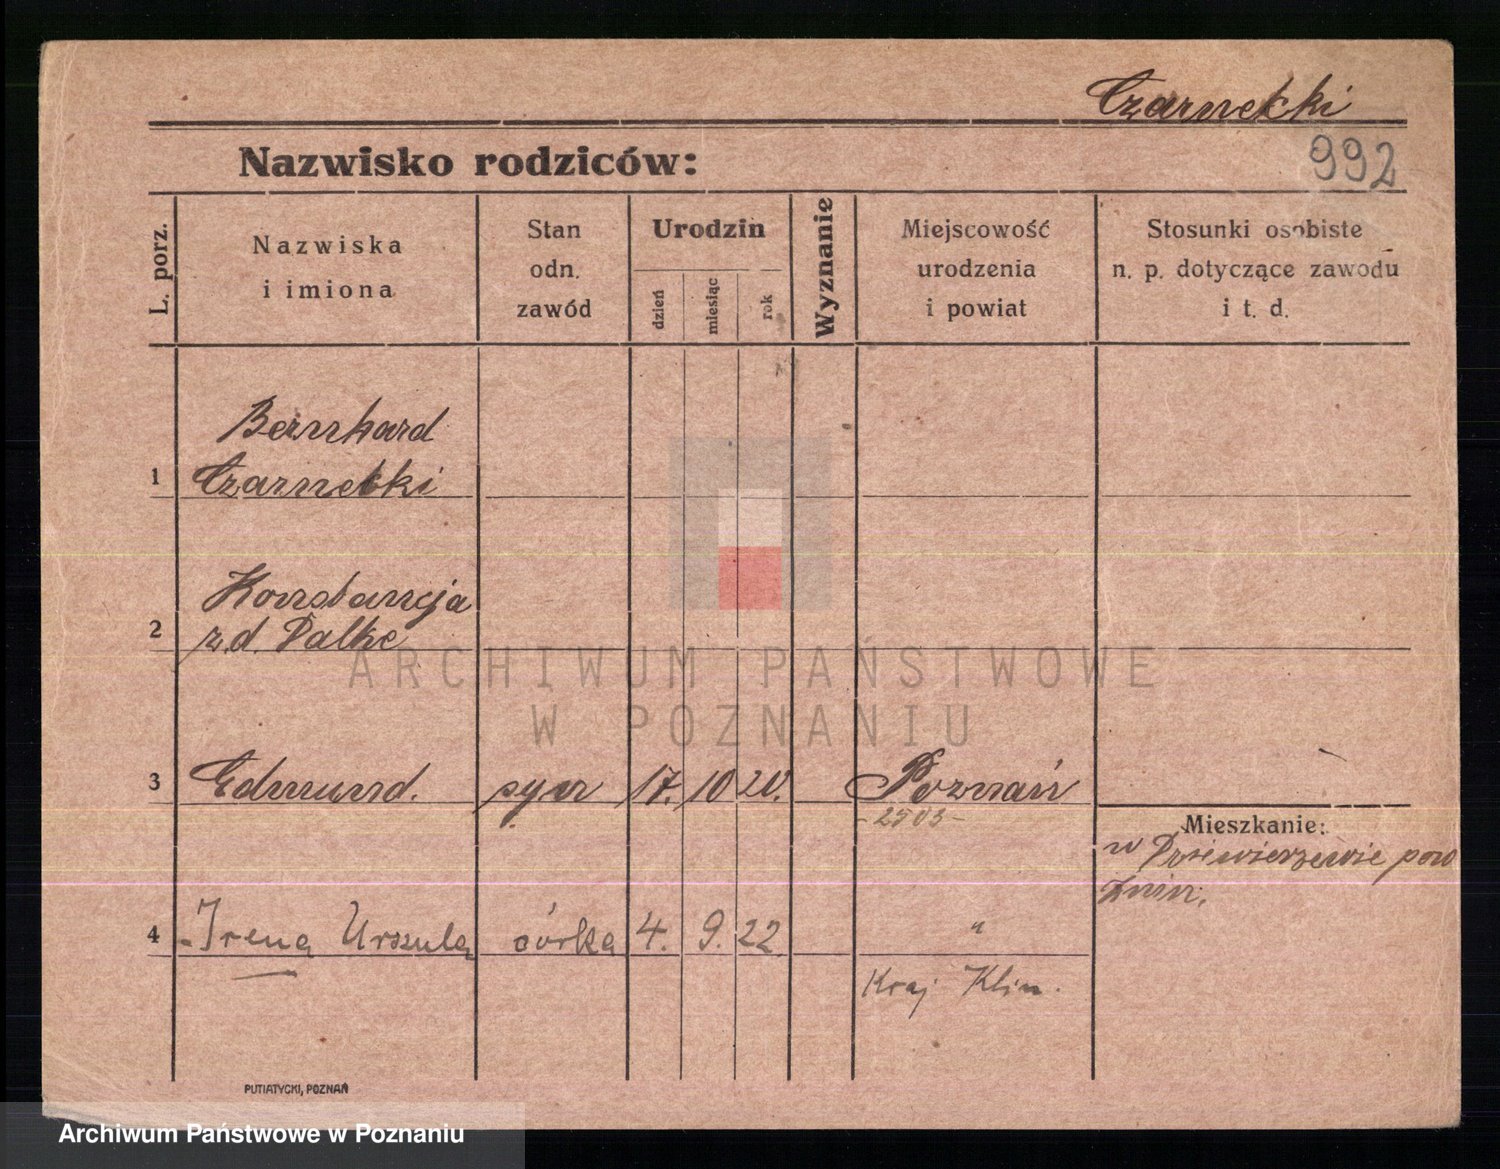 Czarnecki
992
Nazwisko rodziców:
L. porz.
Nazwiska
i imiona
Stan
odn.
zawód
Urodzin
dzień
miesiąc
rok
Wyznanie
Miejscowość
urodzenia
i powiat
Stosunki osobiste
n. p. dotyczące zawodu
i t. d.
Bernhard
1 Czarnecki
Konstancja
2 z.d. Palke
3 Edmund. syn 17. 10 20. Poznań
- 2503 -
Mieszkanie:
w pow
Żnin.
4 - Irena Urszula córka 4. 9. 22 "
Kraj Klin.
PUTIATYCKI, POZNAŃ
ARCHIWUM PAŃSTWOWE
W POZNANIU
Archiwum Państwowe w Poznaniu